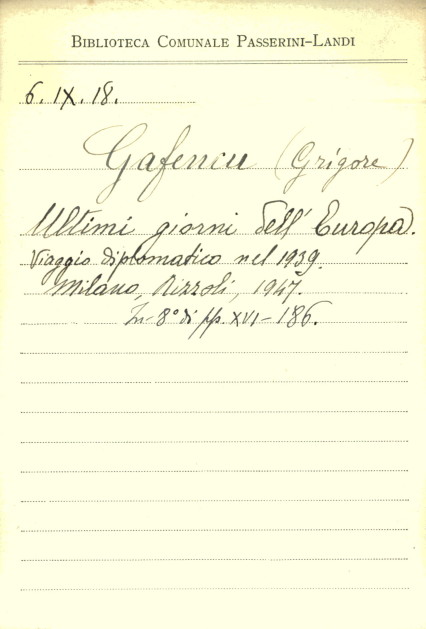 BIBLIOTECA COMUNALE PASSERINI-LANDI
6. IX. 18.
Gafencu (Grigore)
Ultimi giorni dell'Europa.
Viaggio diplomatico nel 1939.
Milano, Rizzoli, 1947.
In-8° di pp. XVI-186.